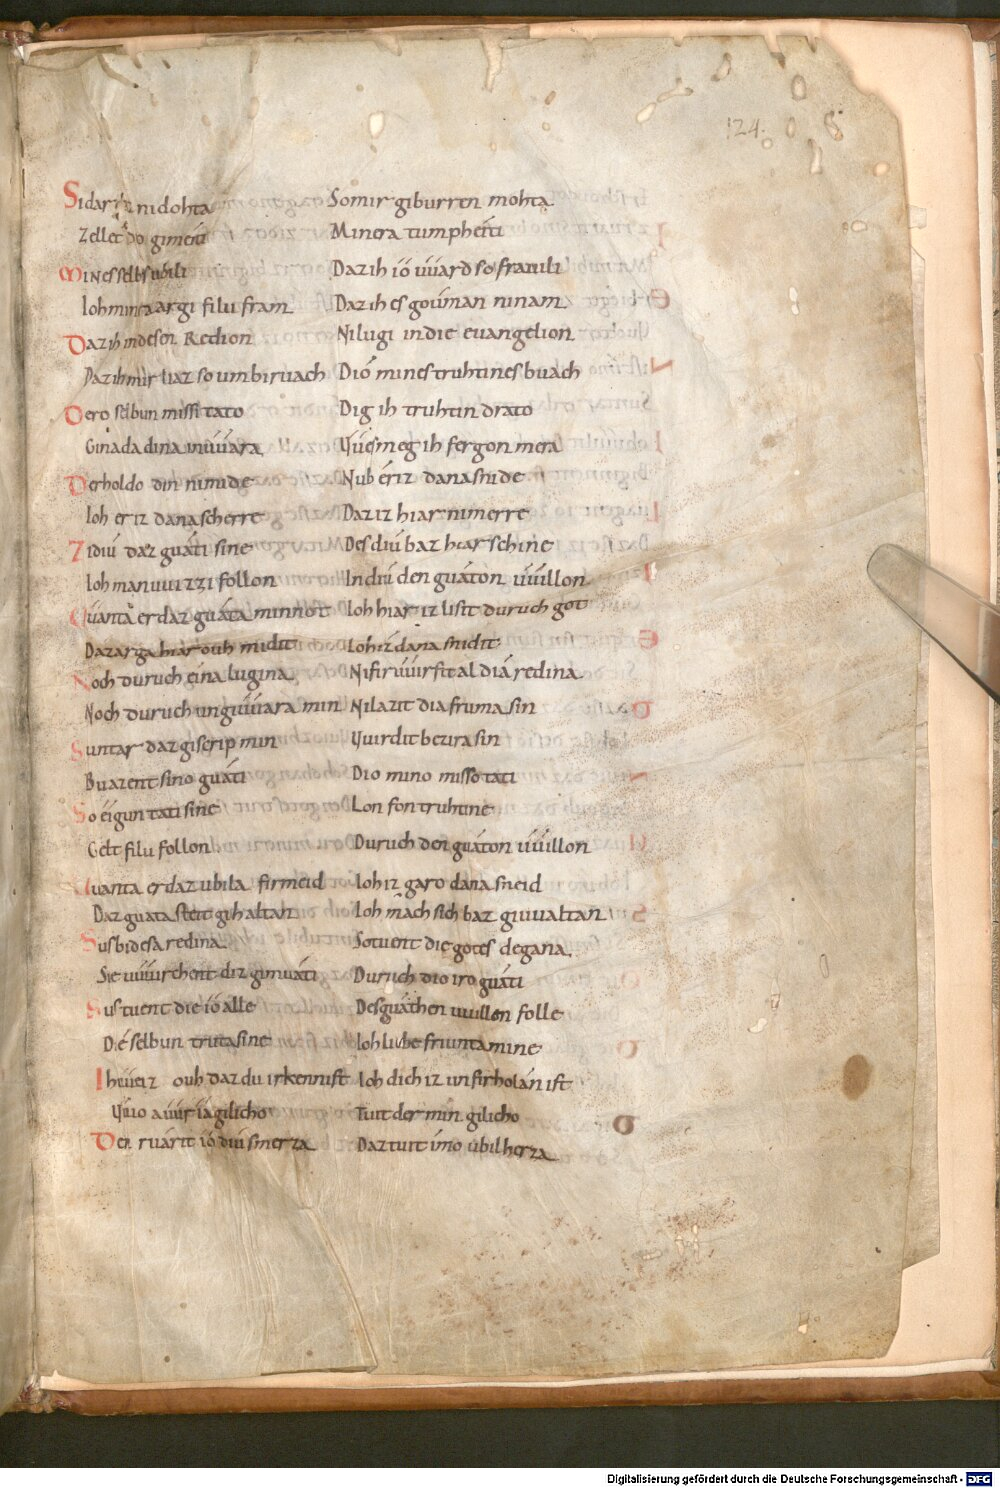 124.
Sidar ih nidohta Somir giburren mohta
Zellet do gimeiti Minera tumpheiti
Mines selbs ubili Daz ih io uuard so frauili
Ioh minera argi filu fram Daz ih es gouman ninam
Daz ih indesen Redion Nilugi in die euangelion
Daz ih mir liaz so umbiruach Dio mines truhtines buach
Dero selbun missitato Dig ih truhtin drato
Ginada dina in uuara Uues meg ih fergon mera
Der holdo din nimide Nub er iz dana snide
Ioh er iz dana scherre Daz iz hiar ni merre
Zi diu daz guati sine Des diu baz hiar schine
Ioh man uuizzi follon In diu den guaton uuillon
Uuanta er daz guata minnot Ioh hiar iz lisit duruch got
Daz arga hiar ouh midit Ioh iz dana snidit
Noch duruch eina lugina Ni firuuirfit al dia redina
Noch duruch unguuara min Ni lazit dia fruma sin
Suntar daz giscrip min Uuirdit bezira sin
Buazent sino guati Dio mino missotati
So eigun tati sine Lon fon truhtine
Gelt filu follon Duruch den guaton uuillon
Uuanta er daz ubila firmeid Ioh iz garo dana sneid
Daz guata steit gihaltan Ioh mach sich baz giuualtan
Sus bi desa redina So tuent die gotes degana
Sie uuirchent diz gimuati Duruch dio iro guati
Sus tuent die io alle Des guathen uuillen folle
Die selbun truta sine Ioh liube friunta mine
Ih uueiz ouh daz du irkennist Ioh dich iz unfirholan ist
Uuio auur ia gilicho Tuit der min gilicho
Der ruarit io diu smerza Daz tuit imo ubil herza
Digitalisierung gefördert durch die Deutsche Forschungsgemeinschaft - DFG